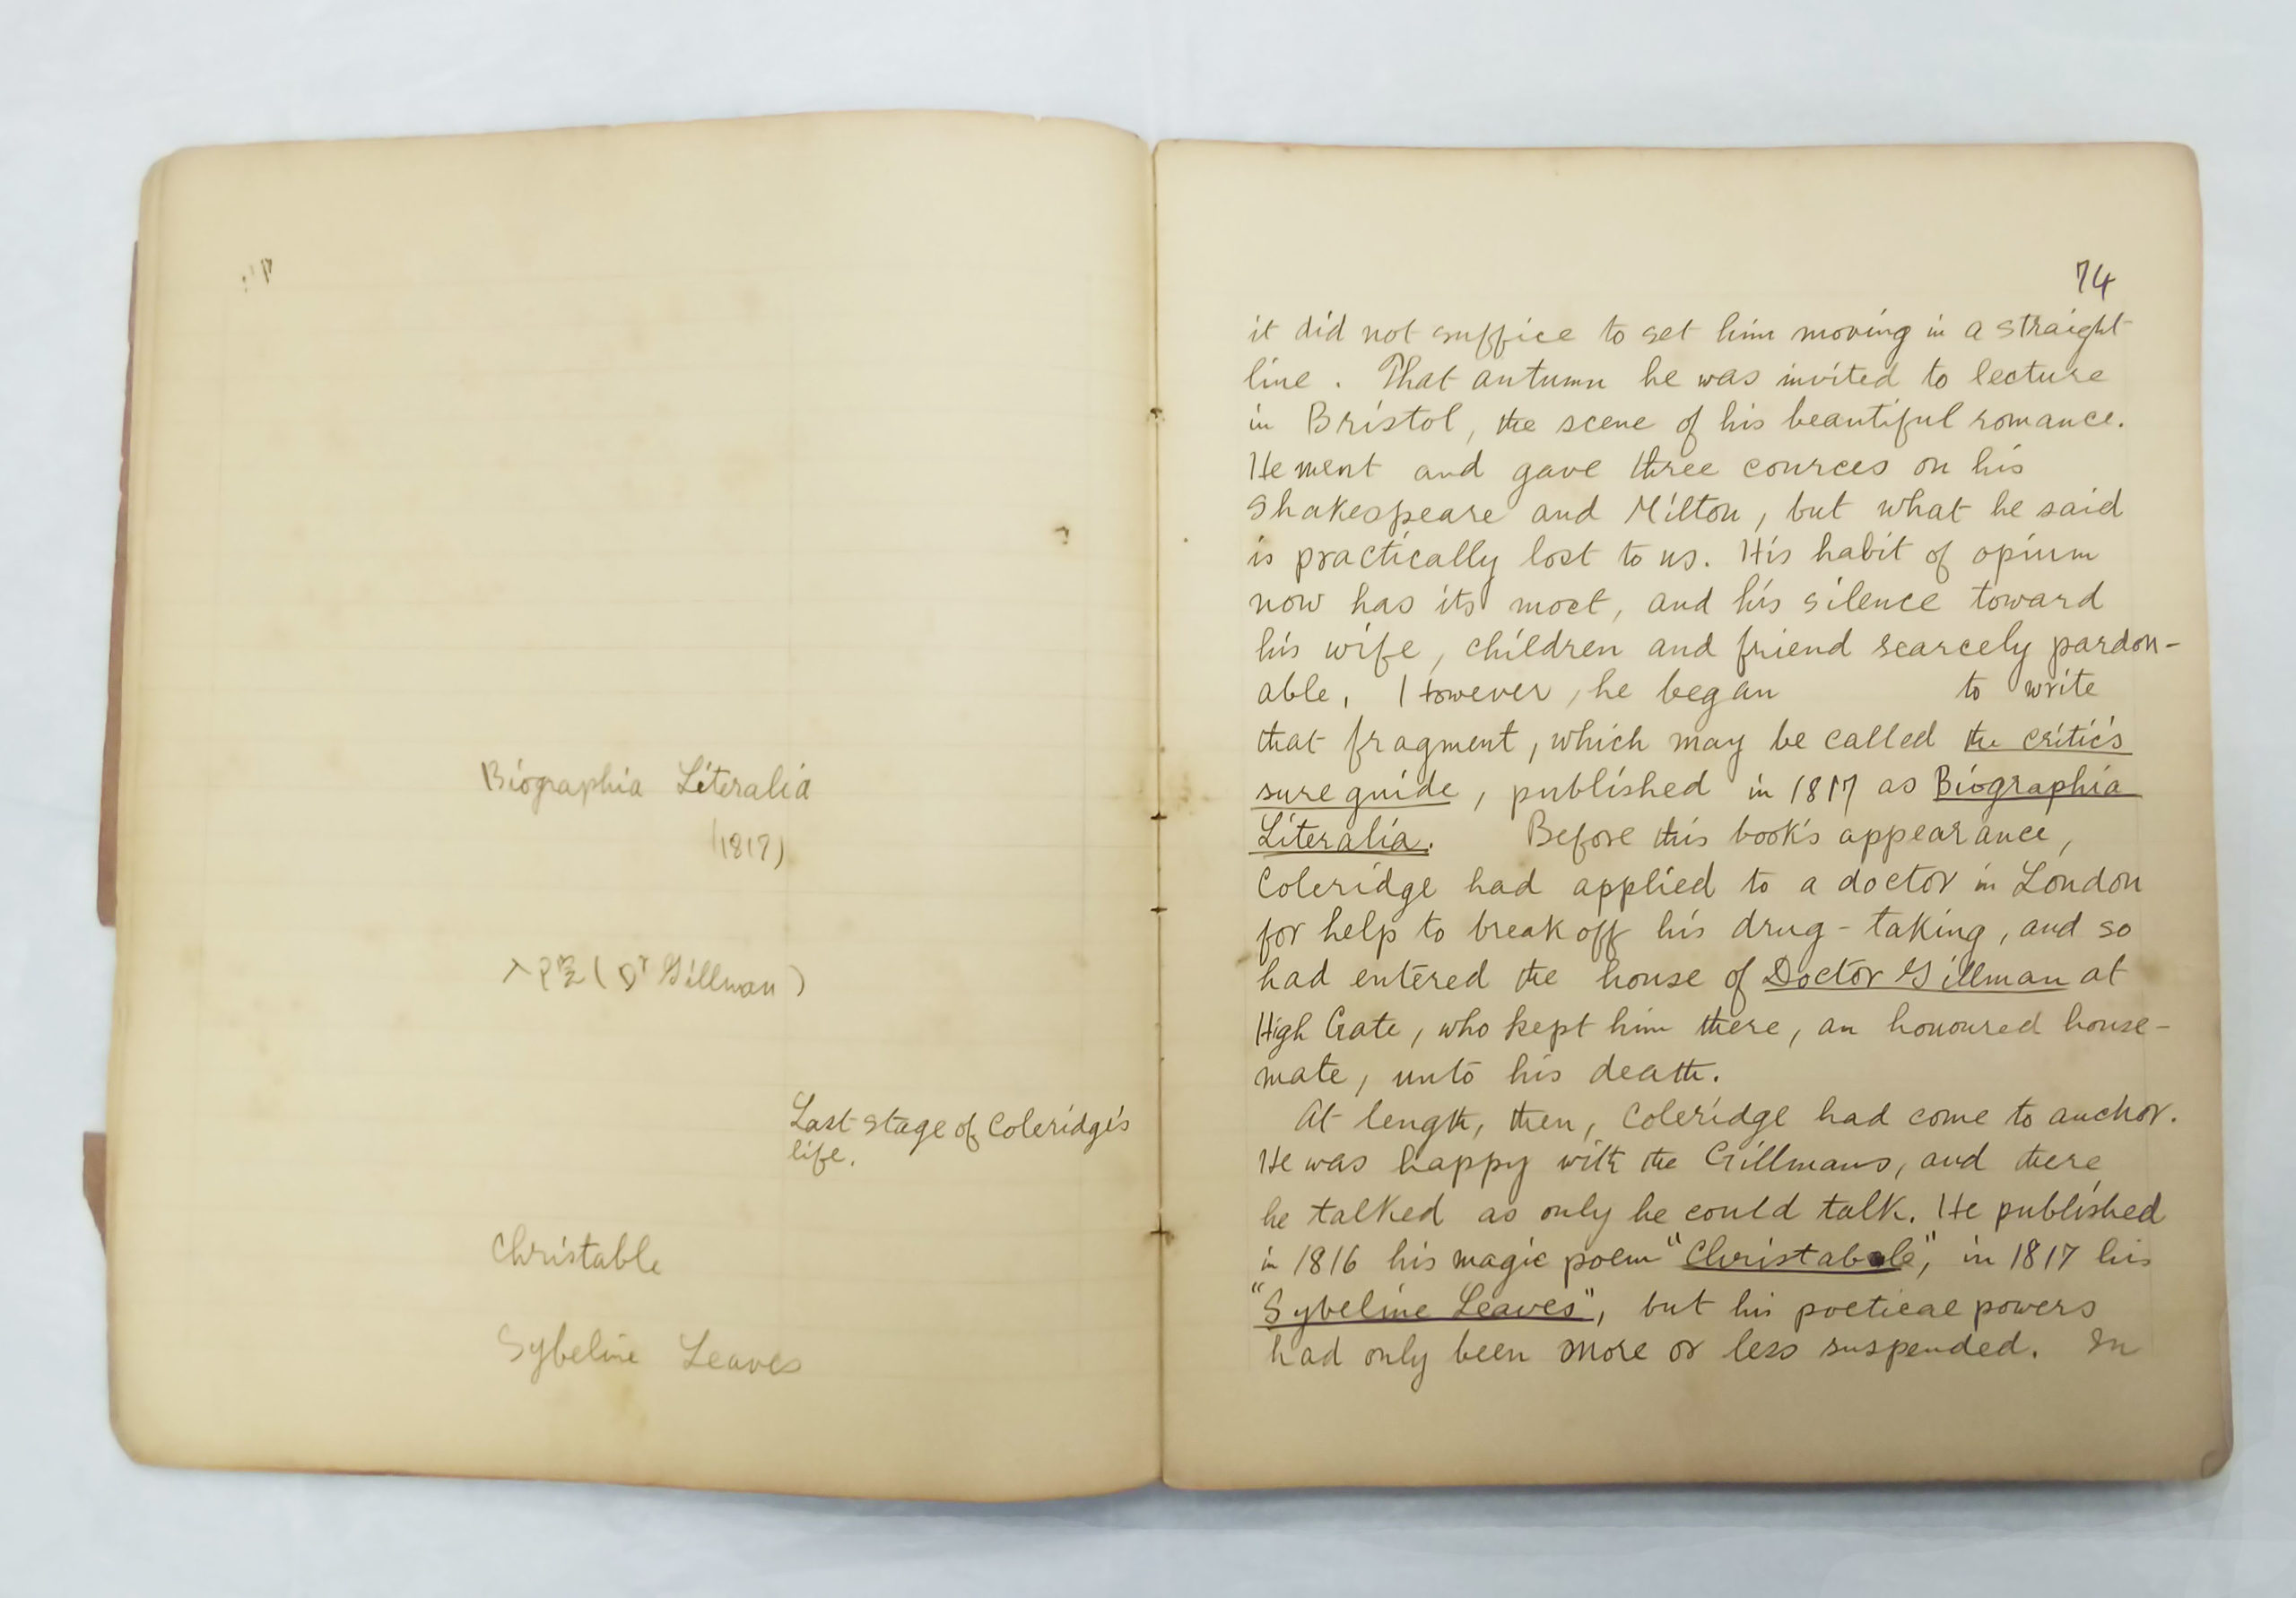 Biographia Literalia
(1817)
入院 (Dr Gillman)
Last stage of Coleridge's
life.
Christable
Sybeline Leaves
74
it did not suffice to set him moving in a straight
line. That autumn he was invited to lecture
in Bristol, the scene of his beautiful romance.
He went and gave three cources on his
Shakespeare and Milton, but what he said
is practically lost to us. His habit of opium
now has its most, and his silence toward
his wife, children and friend scarcely pardon-
able. However, he began to write
that fragment, which may be called the critic's
sure guide, published in 1817 as Biographia
Literalia. Before this book's appearance,
Coleridge had applied to a doctor in London
for help to break off his drug-taking, and so
had entered the house of Doctor Gillman at
High Gate, who kept him there, an honoured house-
mate, unto his death.
At length, then, Coleridge had come to anchor.
He was happy with the Gillmans, and there
he talked as only he could talk. He published
in 1816 his magic poem "Christabole", in 1817 his
"Sybeline Leaves", but his poetical powers
had only been more or less suspended. In